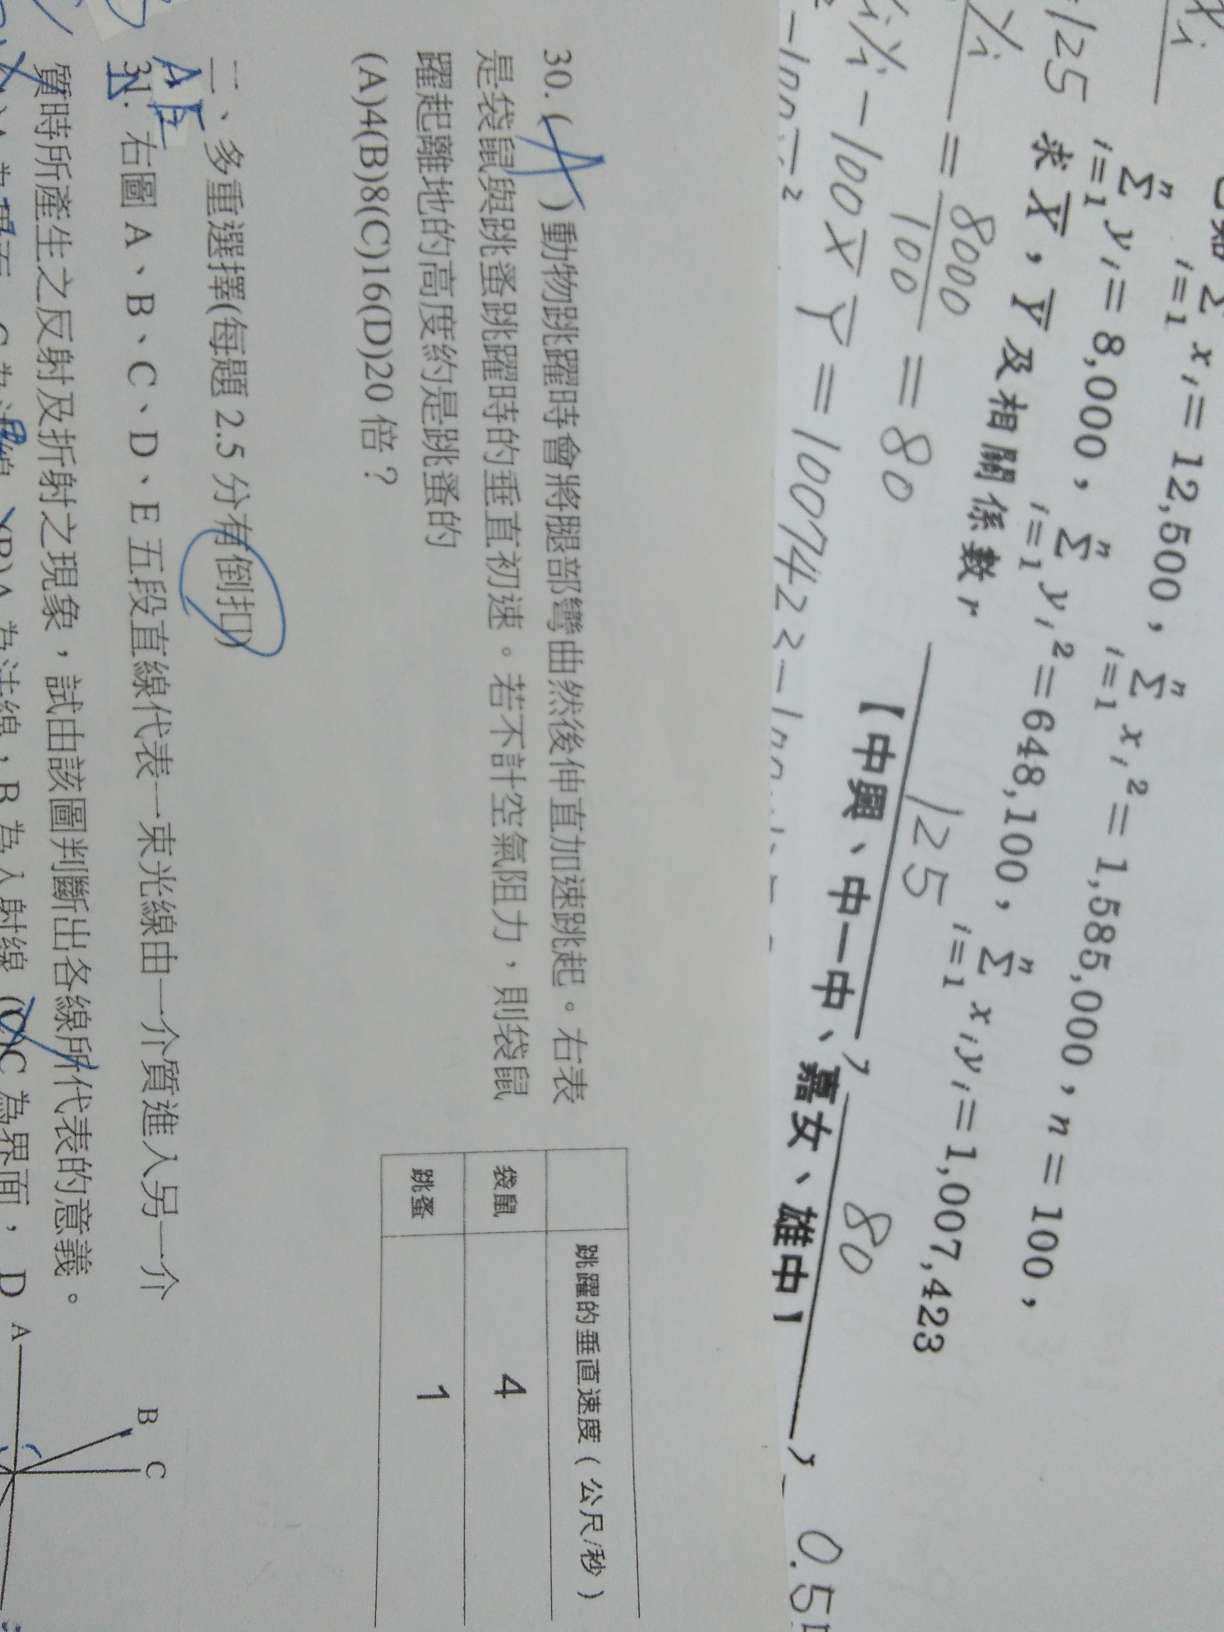 已知 n Σ i=1 xi = 12,500，n Σ i=1 xi² = 1,585,000，n = 100，
n Σ i=1 yi = 8,000，n Σ i=1 yi² = 648,100，n Σ i=1 xiyi = 1,007,423
求 X̄，Ȳ 及相關係數 r。
125，80，0.5
【中興、中一中、嘉女、雄中】
= 8000/100 = 80
- 100 X̄ Ȳ = 1007423 - 100
30. ( A ) 動物跳躍時會將腿部彎曲然後伸直加速跳起。右表
是袋鼠與跳蚤跳躍時的垂直初速。若不計空氣阻力，則袋鼠
躍起離地的高度約是跳蚤的
(A)4(B)8(C)16(D)20 倍？
跳躍的垂直速度（公尺/秒）
袋鼠 4
跳蚤 1
二、多重選擇(每題 2.5 分有倒扣)
31. 右圖 A、B、C、D、E 五段直線代表一束光線由一介質進入另一介
質時所產生之反射及折射之現象，試由該圖判斷出各線所代表的意義。
(B)A 為法線，B 為入射線 (C)C 為界面，D
A
B
C